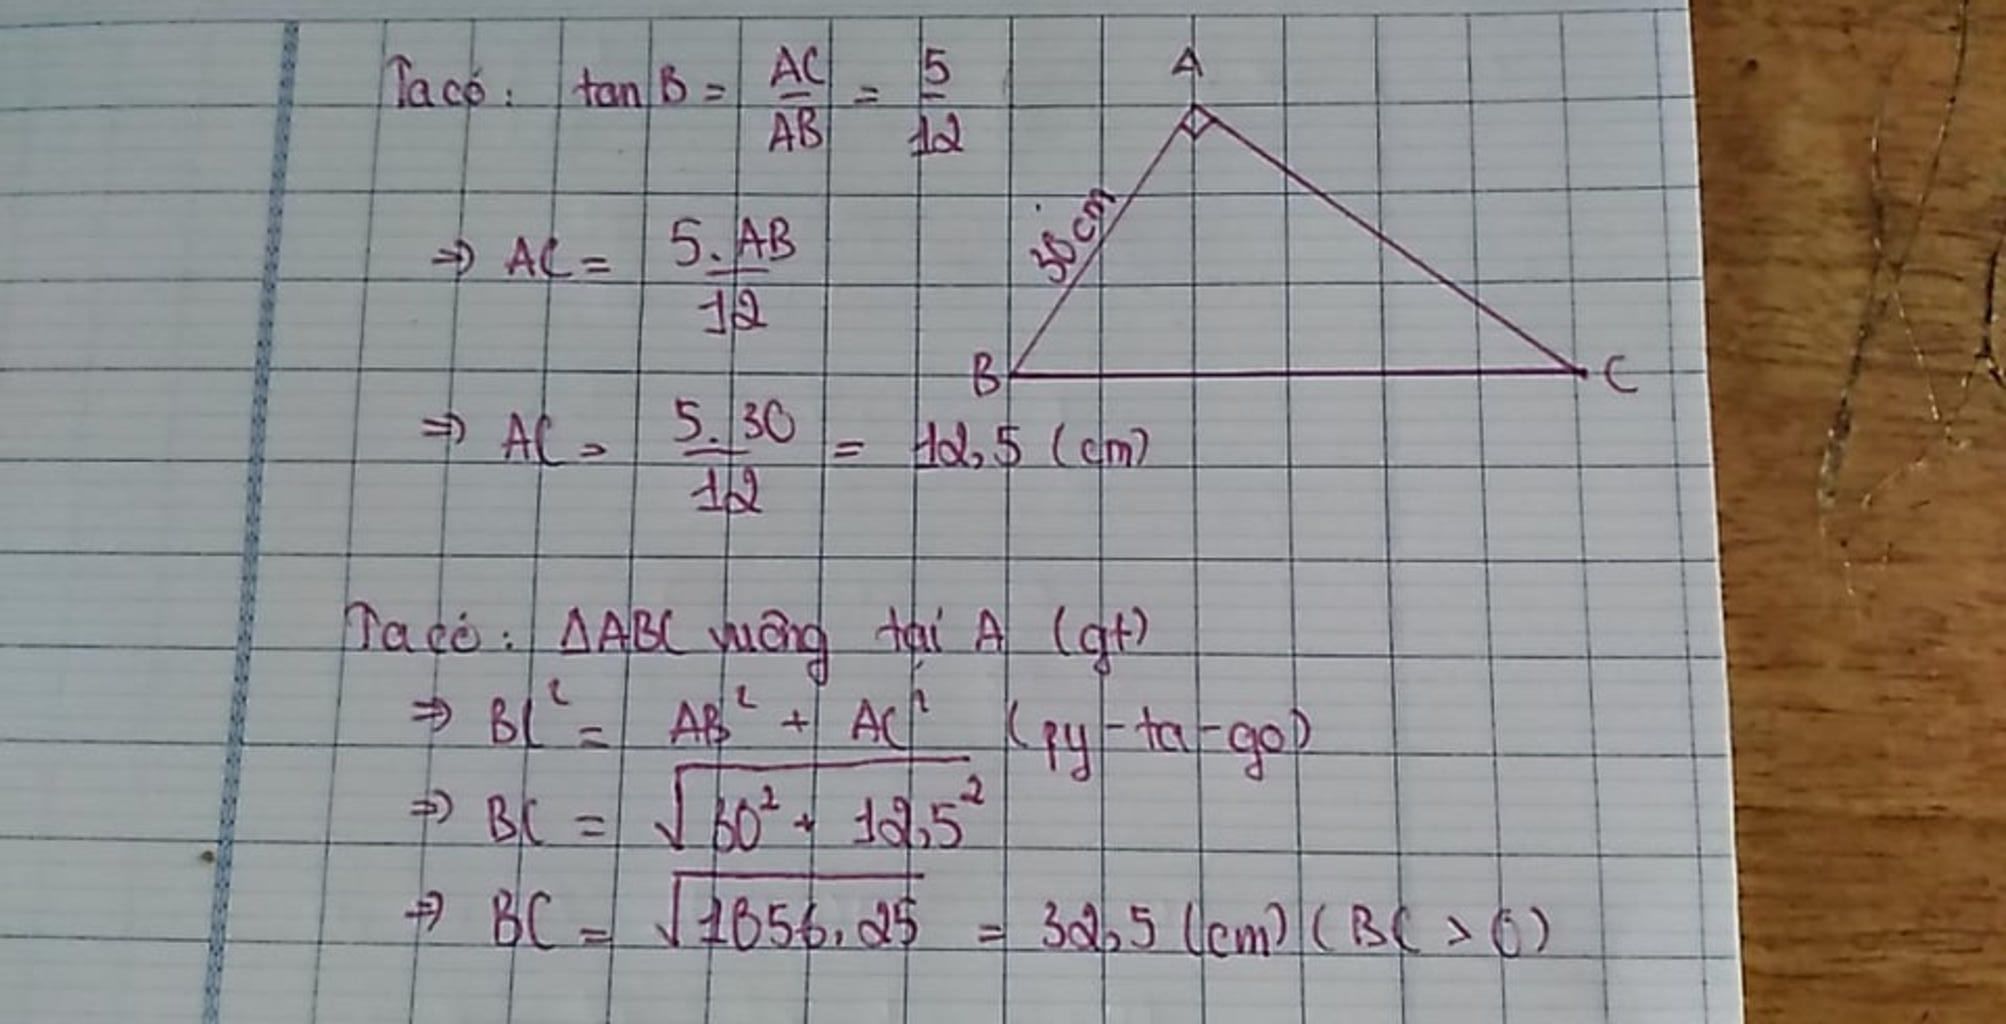 Ta có: tan B = AC/AB = 5/12
A
⇒ AC = 5.AB/12
30cm
B
C
⇒ AC = 5.30/12 = 12,5 (cm)
Ta có: ΔABC vuông tại A (gt)
⇒ BC² = AB² + AC² (py-ta-go)
⇒ BC = √30² + 12,5²
⇒ BC = √1056,25 = 32,5 (cm) (BC > 0)